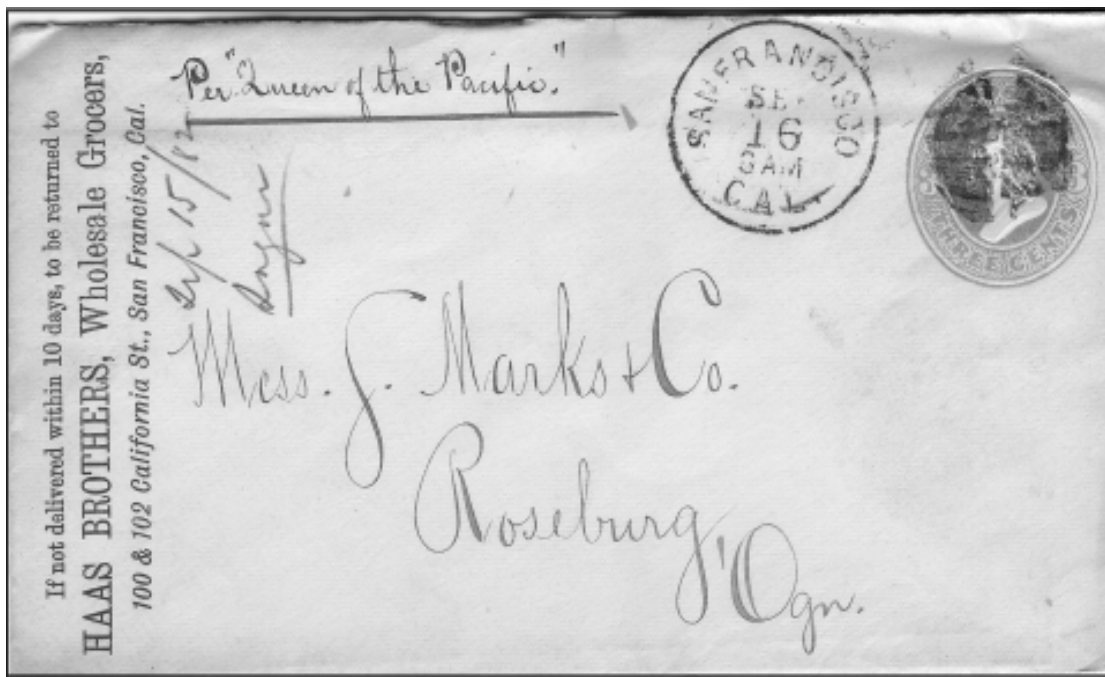 If not delivered within 10 days, to be returned to
HAAS BROTHERS, Wholesale Grocers,
100 & 102 California St., San Francisco, Cal.
Per "Queen of the Pacific."
Sep 15/82
SAN FRANCISCO
SEP
16
8AM
CAL.
THREE CENTS
Mess. S. Marks & Co.
Roseburg
Ogn.